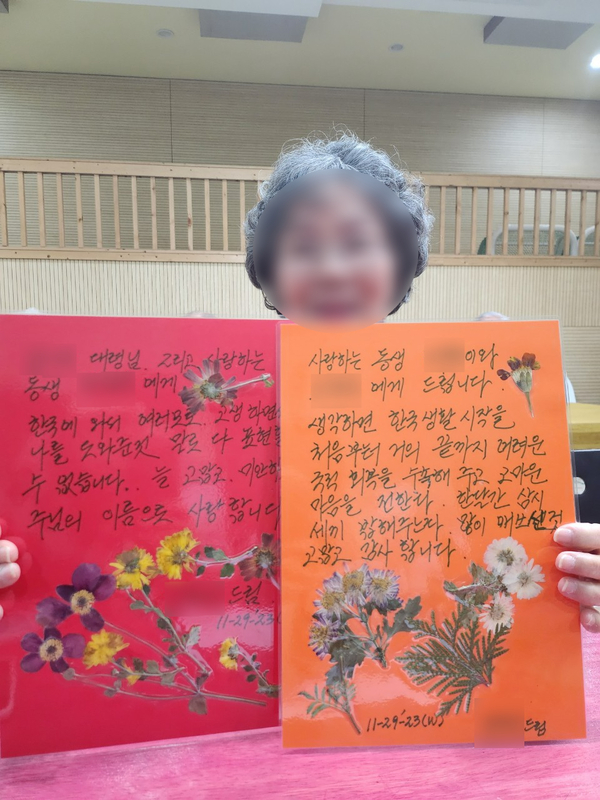 대령님. 그리고 사랑하는
동생 에게
한국에 와서 여러모로. 고생 하면서
나를 도와준것 말로 다 표현할
수 없습니다.. 늘 고맙고. 미안하
주님의 이름으로 사랑 합니다
드림
11-29-23
사랑하는 동생 이와
에게 드립니다.
생각하면 한국생활 시작을
처음부터 거의 끝까지 어려운
국적 회복을 수확해 주고 고마운
마음을 전한다. 한달간 삼시
세끼
고맙고 감사 합니다.
11-29-23(W)
드림